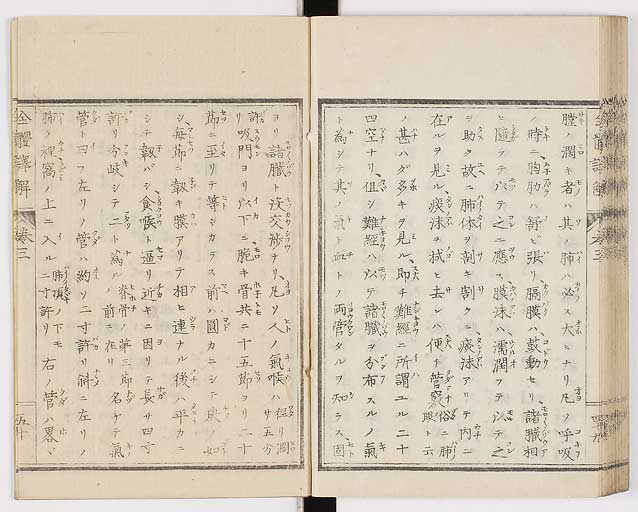 膛ノ濶キ者ハ其ノ肺ハ必ス大ヒナリ凡ソ呼吸
ノ時ニ胸肋ハ舒ビ張リ膈膜ハ鼓動セリ諸臓相
ヒ隨フテ以テ之ニ應ス膜沫ハ濡潤フテ以テ之
ヲ助ク故ニ肺体ヲ割キ割クニ痰沫アリテ内ニ
在ルヲ見ル痰沫ヲ拭ヒ去レハ便チ管竅俗ニ肺眼ト云
ノ甚ハダ多キヲ見ル即チ難經ニ所謂ユル二十
四空ナリ但シ難經ハ以テ諸臓ヲ分布スルノ氣
ト為シテ其ノ氣ト血トノ両管タルヲ知ラス固
ヨリ諸臓ト没交渉ナリ凡ソ人ノ氣喉ハ徑リ濶サ五分
許リ吸門ヨリ以下ニ脆キ骨共ニ十五節ヨリ二十
節ニ至リテ等シカラス前ハ圓カニシテ玦ノ如
シ毎節ニ靱キ膜アリテ相ヒ連ナル後ハ平カニ
シテ靱バシ食喉ト逼リ近キニ因リテ長サ四寸
許リ分岐シテ二ト為ル脊骨ノ第三節ノ前ニ在リ名ケテ氣
管ト曰フ左リノ管ハ約ソ二寸許リ斜ニ左リノ
肺ノ裡窩ノ上ニ入ル肺頂ノ下モ二寸許リ右ノ管ハ畧ゞ
全體譯解
巻三
五十